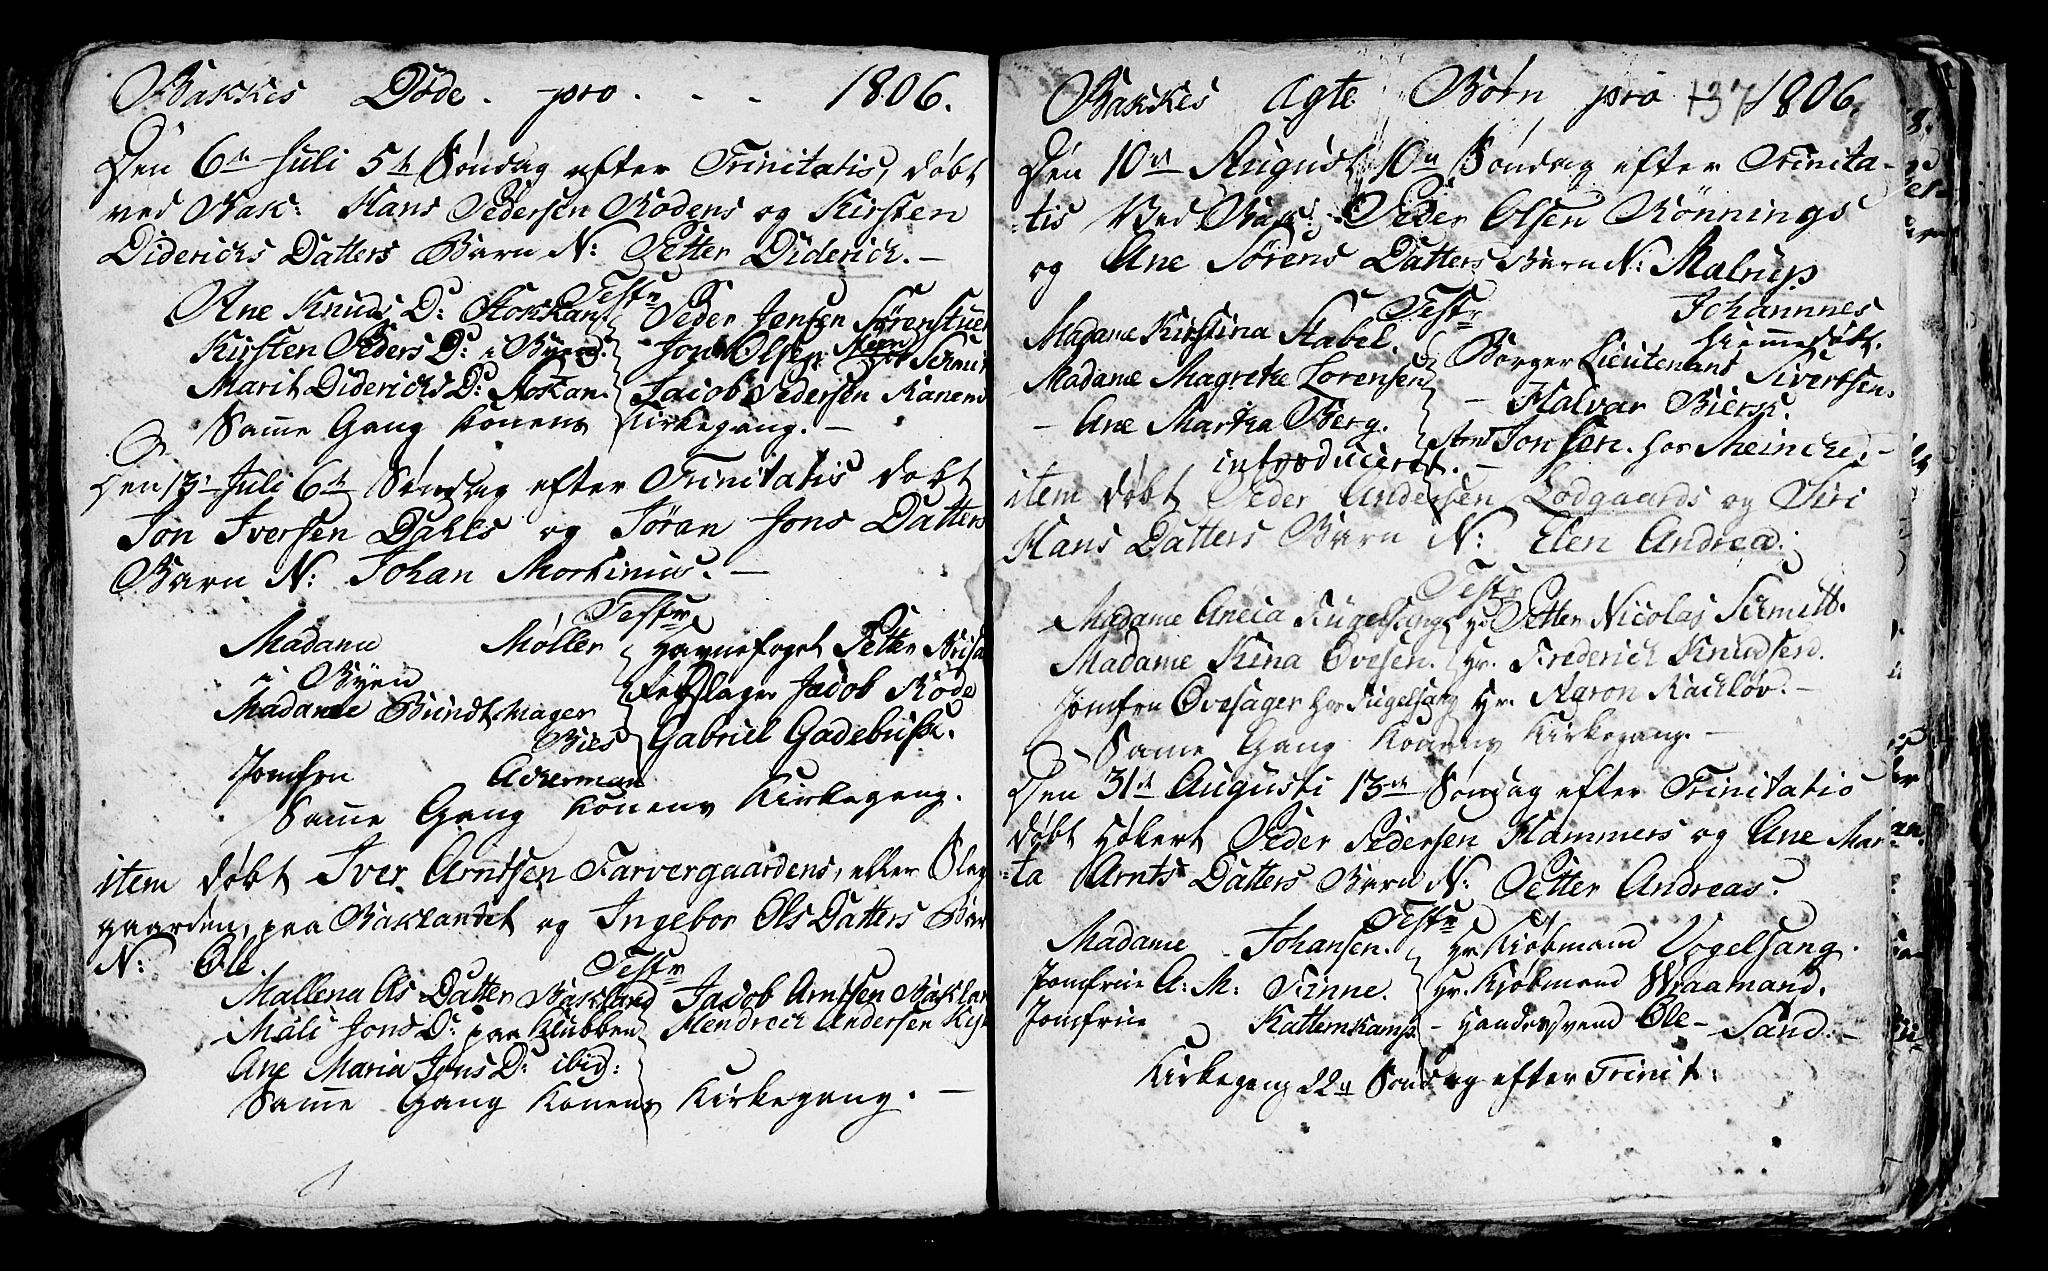 Bakkes Döde. pro. - - 1806.
Den 6te Juli 5te Söndag efter Trinitatis, döbt
ved Bak: Hans Pedersen Rodens og Kirsten
Diderichs Datters Barn N: Petter Diderich. -
Testr
Ane Knuds D: Stokkan. Peder Jensen Sörenstuen
Kirsten Peders D: i Byend. Jon Olsen hos Schmit
Marit Diderichs D: Stokan. Jacob Pedersen Kanens
Samme Gang Konens Kirkegang. -
Den 13de Juli 6te Söndag efter Trinitatis döbt
Jon Iversen Dahls og Jöran Jons Datters
Barn N: Johan Mortinus. -
Testr
Madame Möller Havnefoget Petter
i Byen
Madame Bundtmager Feldslager Jacob Röde
Bies Gabriel Gadebusch.
Jomfru Ackerman
Samme Gang Konens Kirkegang.
item döbt Iver Arntsen Farvergaardens, eller
gaarden, paa Baklandet og Ingebor Ols Datters Bar
N: Ole.
Testr
Mallena Os Datter Bakland Jacob Arntsen Baklan
Mali Jons D: paa Klubben Hendrech Andersen
Ane Maria Jons D: ibid:
Samme Gang Konens Kirkegang. -
Bakkes Ægte Börn pro 137 1806.
Den 10de August 10de Söndag efter Trinita-
-tis Ved Bak: Peder Olsen Rönnings
og Ane Sörens Datters Barn N: Matrup
Johannes
Testr
hiemmedöbt.
Madame Kirstina Stabel. Borger Lieutenant Sivertsen.
Madame Magrete Lorensen - Halvar Biersk.
- Ane Martha Berg. Arnt Jonsen. hos Meincke. -
introduceret. -
item döbt Peder Andersen Lodgaards og Siri
Hans Datters Barn N: Elen Andrea.
Testr
Madame Aneca Fugelsang Hr Petter Nicolas Schmett.
Madame Kina Ovesen. Hr. Frederich Knudsen.
Jomfru Ovesager hos Fugelsang Hr. Aaron Rachlöv. -
Samme Gang Konens Kirkegang. -
Den 31te Augusti 13de Söndag efter Trinitatis
döbt Hökert Peder Pedersen Hammers og Ane Mar-
-ta Arnts Datters Barn N: Petter Andreas.
Testr
Madame Johansen. Hr. Kiöbmand Vogelsang.
Jomfrue A: M: Finne. Hr. Kjöbmand Waamand.
Jomfrue Kattemkamp - Handelssvend Ole - Sand. -
Kirkegang 22de Söndag efter Trinit: